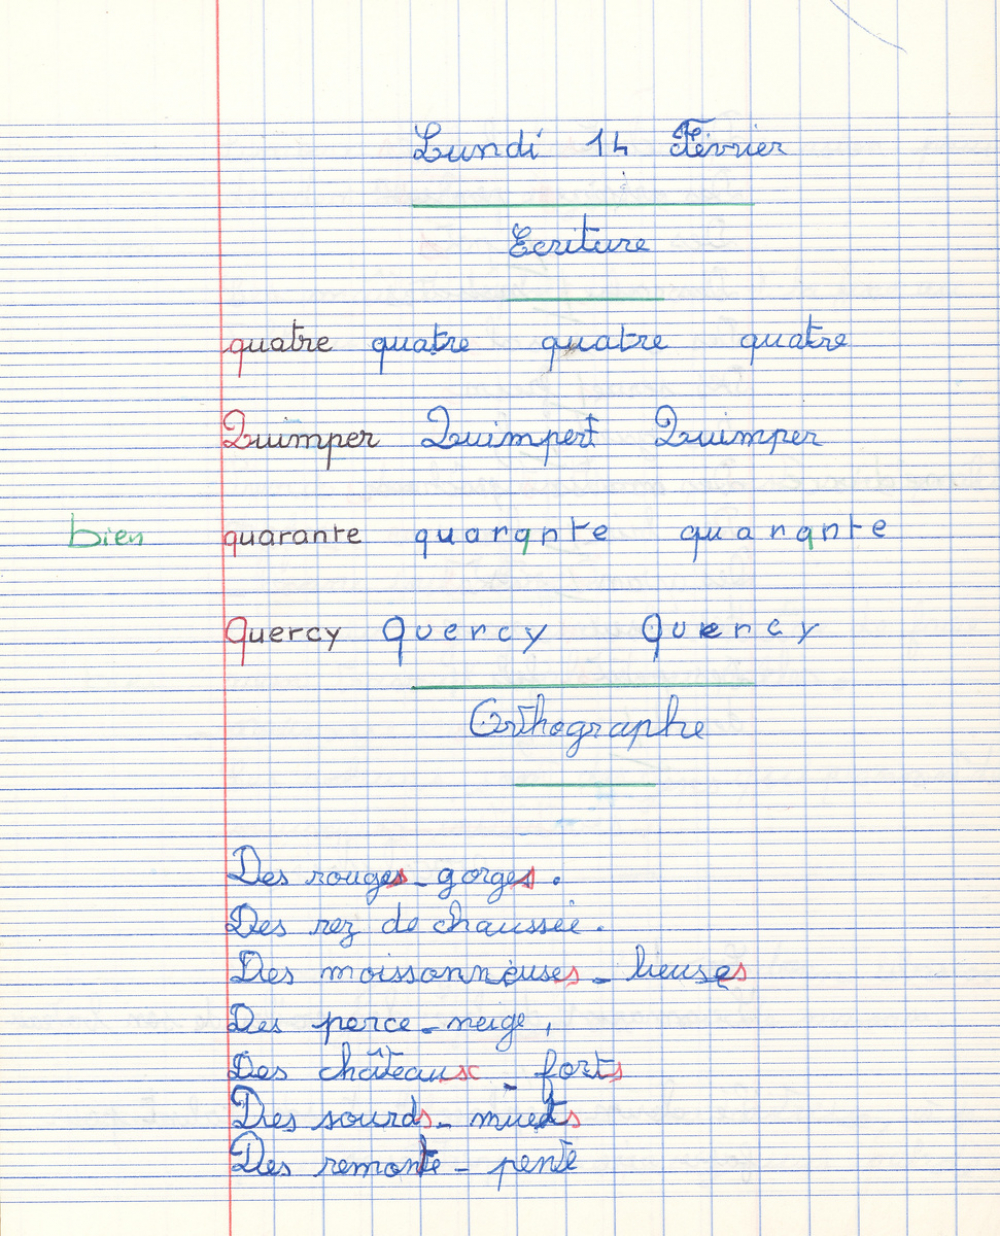 Lundi 14 Février
Ecriture
quatre quatre quatre quatre
Quimper Quimpert Quimper
bien quarante quarante quarante
Quercy Quercy Quercy
Orthographe
Des rouges-gorges.
Des rez de chaussée.
Des moissonneuses-lieuses
Des perce-neige,
Des châteaux-forts
Des sourds-muets
Des remonte-pente